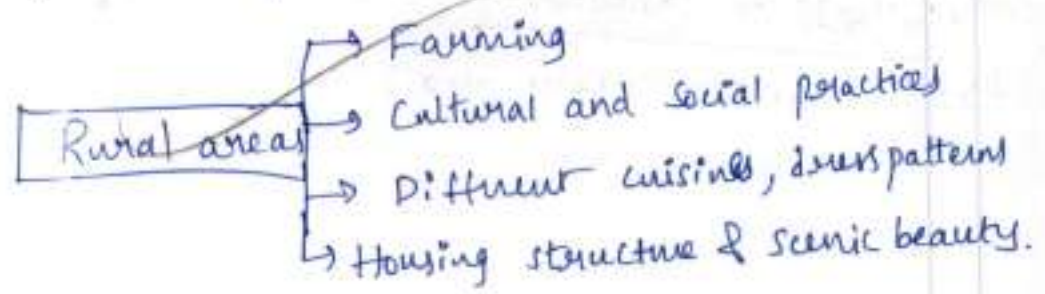 Farming
Cultural and Social practices
Rural areas
Different cuisines, dress patterns
Housing structure & scenic beauty.